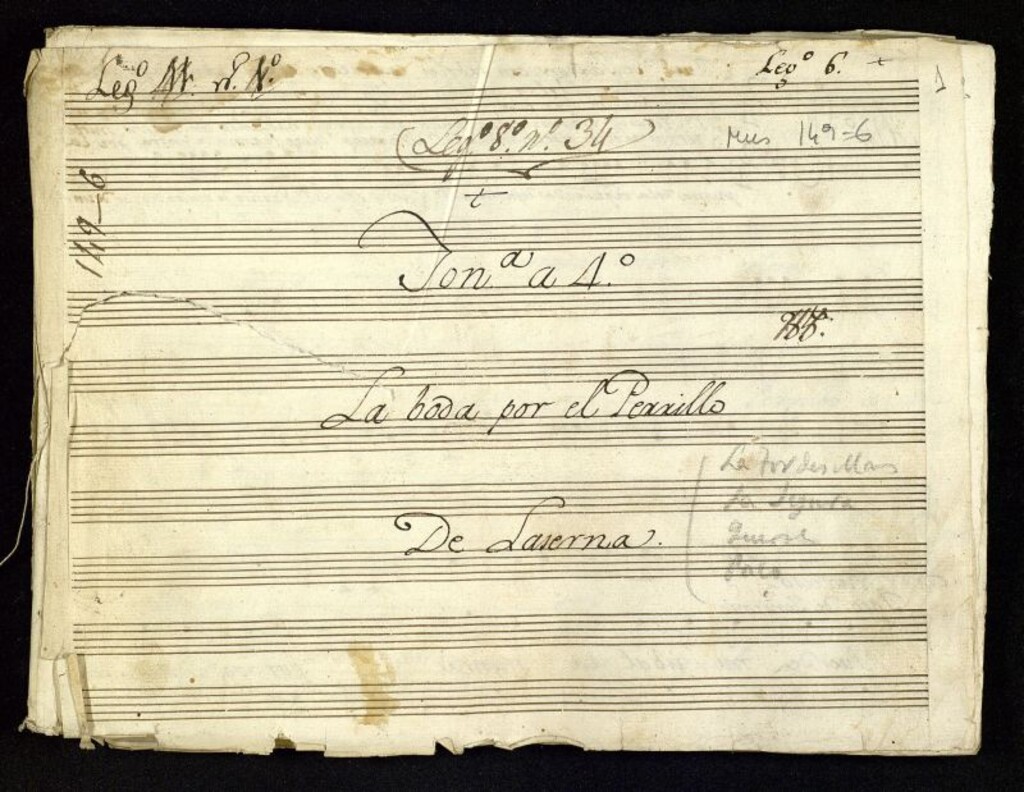 Leg.º
Leg.º 6.
1
(Leg.º 8.º n.º 34)
Mus 149-6
149-6
Ton.ª a 4.º
La boda por el Perrillo
La Tordesillas
La Segura
De Laserna.